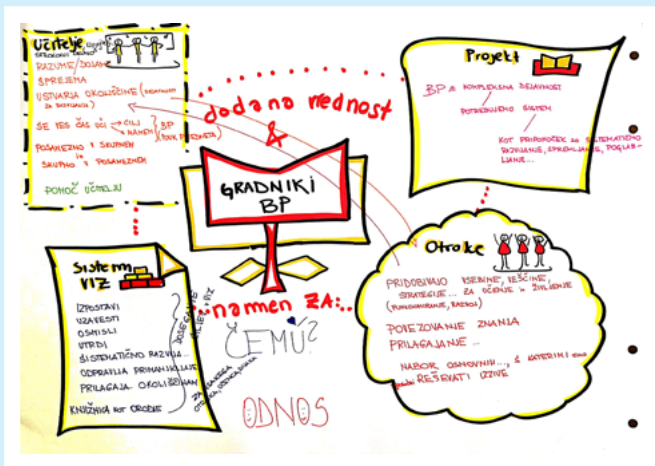 Učitelje
RAZUME / DOJAME
SPREJEMA
USTVARJA OKOLIŠČINE (
SE VES ČAS UČI → CILJ
NAMEN
BP
POSAMEZNO V SKUPNEM
in
SKUPNO V POSAMEZNEM
POMOČ UČITELJU
dodana vrednost
&
GRADNIKI
BP
namen ZA:..
ČEMU?
ODNOS
Projekt
BP JE KOMPLEKSNA DEJAVNOST
POTREBUJEMO SISTEM
KOT PRIPOMOČEK ZA SISTEMATIČNO
RAZVIJANJE, SPREMLJANJE, POGLAB-
LJANJE...
Sistem
VIZ
IZPOSTAVI
UZAVESTI
OSMISLI
UTRDI
SISTEMATIČNO RAZVIJA...
ODPRAVLJA PRIMANJKLJAJE
PRILAGAJA OKOLIŠČINAM
KNJIŽNICA KOT ORODJE
DOSEGANJE
CILJEV VIZ
ZA VSAKEGA
OTROKA, UČENCA, DIJAKA
Otroke
PRIDOBIVAJO VSEBINE, VEŠČINE,
STRATEGIJE... ZA UČENJE in ŽIVLJENJE
(FUNKCIONIRANJE, RAZVOJ)
POVEZOVANJE ZNANJA
PRILAGAJANJE ...
NABOR OSNOVNIH..., S KATERIMI
REŠEVATI IZZIVE